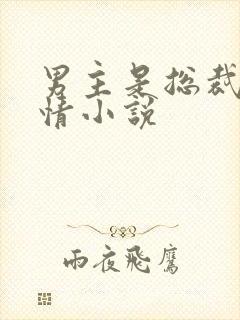 男主是总裁
情小说
雨夜飛鷹